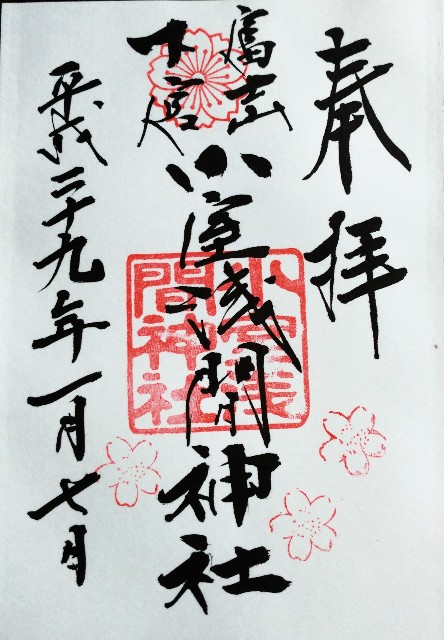 奉拝
冨士山
下宮
小室浅間神社
小室浅
間神社
平成二十九年一月七日